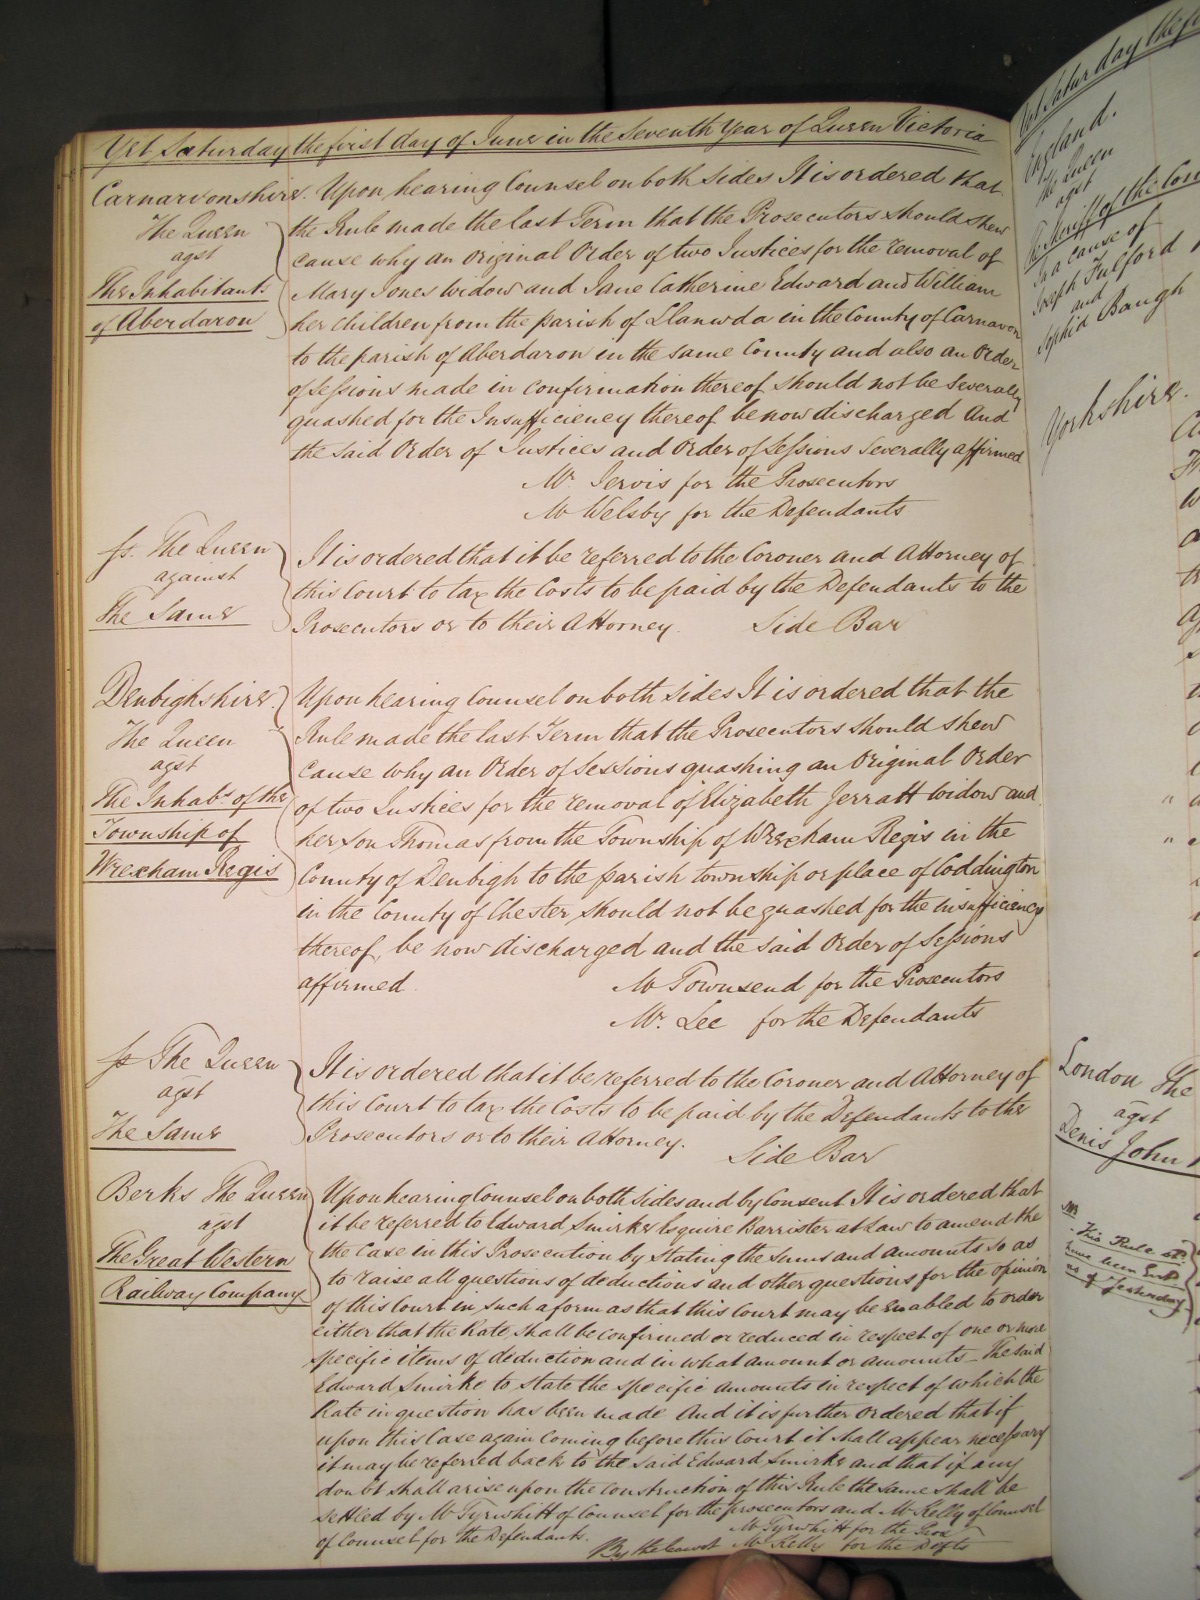 Yet Saturday the first day of June in the Seventh Year of Queen Victoria
Carnarvonshire. Upon hearing Counsel on both sides It is ordered that
The Queen
agst
The Inhabitants
of Aberdaron
the Rule made the last Term that the Prosecutors should shew
cause why an Original Order of two Justices for the removal of
Mary Jones Widow and Jane Catherine Edward and William
her children from the parish of Llanwda in the County of Carnarvon
to the parish of Aberdaron in the same County and also an Order
of Sessions made in confirmation thereof should not be Severally
quashed for the Insufficiency thereof be now discharged And
the said Order of Justices and Order of Sessions Severally affirmed
Mr. Jervis for the Prosecutors
Mr Welsby for the Defendants
Ss. The Queen
against
The Same
It is ordered that it be referred to the Coroner and Attorney of
this Court to tax the Costs to be paid by the Defendants to the
Prosecutors or to their Attorney. Side Bar
Denbighshire.
The Queen
agst
The Inhabs. of the
Township of
Wrexham Regis
Upon hearing Counsel on both sides It is ordered that the
Rule made the last Term that the Prosecutors should shew
cause why an Order of Sessions quashing an Original Order
of two Justices for the removal of Elizabeth Jerratt widow and
her son Thomas from the Township of Wrexham Regis in the
County of Denbigh to the parish township or place of Coddington
in the County of Chester should not be quashed for the insufficiency
thereof, be now discharged and the said Order of Sessions
affirmed
Mr Townsend for the Prosecutors
Mr. Lee for the Defendants
Ss The Queen
agst
The Same
It is ordered that it be referred to the Coroner and Attorney of
this Court to tax the Costs to be paid by the Defendants to the
Prosecutors or to their Attorney.
Side Bar
Berks The Queen
agst
The Great Western
Railway Company
Upon hearing Counsel on both sides and by Consent It is ordered that
it be referred to Edward Smirke Esquire Barrister at Law to amend the
the Case in this Prosecution by stating the sums and amounts so as
to raise all questions of deductions and other questions for the opinion
of this Court in such a form as that this Court may be Enabled to order
either that the Rate shall be confirmed or reduced in respect of one or more
specific items of deduction and in what amount or amounts – The said
Edward Smirke to state the specific amounts in respect of which the
Rate in question has been made And it is further ordered that if
upon this Case again coming before this Court it shall appear necessary
it may be referred back to the said Edward Smirke and that if any
doubt shall arise upon the construction of this Rule the same shall be
settled by Mr Tyrwhitt of Counsel for the prosecutors and Mr Kelly of Counsel
of Counsel for the Defendants.
Mr Tyrwhitt for the Pros
By the Court Mr Kelly for the Defts
Yet Saturday the
England.
The Queen
agst
The Sheriff of the
In a cause of
Joseph Fulford
and
Sophia Baugh
Yorkshire.
London The
agst
Denis John
This Rule
have been
as of Yesterday